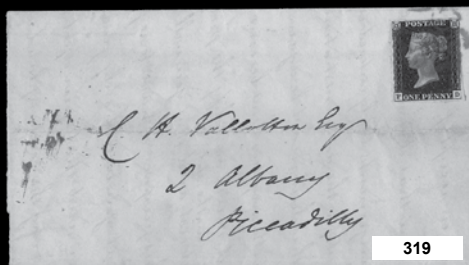 POSTAGE
ONE PENNY
C H. Vallotton Esq
2 Albany
Piccadilly
319